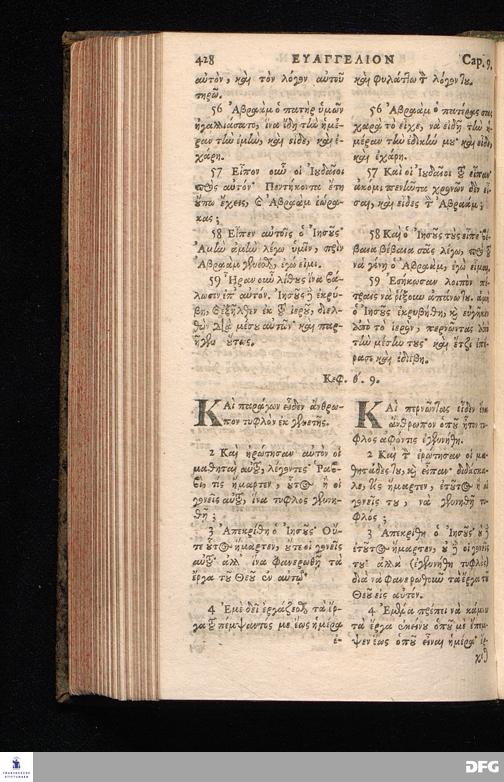 428 ΕΥΑΓΓΕΛΙΟΝ Cap. 9.
αὐτὸν, καὶ τὸν λόγον αὐτοῦ
τηρῶ.
56 Ἀβραὰμ ὁ πατὴρ ὑμῶν
ἠγαλλιάσατο, ἵνα ἴδῃ τὴν ἡμέ-
ραν τὴν ἐμὴν, καὶ εἶδε, καὶ ἐ-
χάρη.
57 Εἶπον οὖν οἱ Ἰουδαῖοι
πρὸς αὐτόν· Πεντήκοντα ἔτη
οὔπω ἔχεις, καὶ Ἀβραὰμ ἑώρα-
κας;
58 Εἶπεν αὐτοῖς ὁ Ἰησοῦς·
Ἀμὴν ἀμὴν λέγω ὑμῖν, πρὶν
Ἀβραὰμ γενέσθ, ἐγώ εἰμι.
59 Ἦραν οὖν λίθους ἵνα βά-
λωσιν ἐπ' αὐτόν. Ἰησοῦς ἢ ἐκρύ-
βη, καὶ ἐξῆλθεν ἐκ τοῦ ἱεροῦ, διελ-
θὼν διὰ μέσου αὐτῶν· καὶ παρ-
ῆγεν οὕτως.
καὶ φυλάττω τὸν λόγον του.
56 Ἀβραὰμ ὁ πατέρας σας
χαρὰ τὸ εἶχε, νὰ εἰδῇ τὴν ἡ-
μέραν τὴν ἐδικήν μου· καὶ εἶδε,
καὶ ἐχάρη.
57 Καὶ οἱ Ἰουδαῖοι
ἀκομι πενῆντα χρονῶν δὲν εἶ-
σαι, καὶ εἶδες τὸν Ἀβραάμ;
58 Καὶ ὁ Ἰησοῦς τοὺς εἶπε· βέ-
βαια βέβαια σᾶς λέγω,
νὰ γένῃ ὁ Ἀβραὰμ, ἐγὼ εἶμαι.
59 Ἐσήκωσαν λοιπὸν πέ-
τραις νὰ ῥίξουν ἀπάνω του.
ὁ Ἰησοῦς ἐκρυβήθη, καὶ εὐγῆκεν
ἀπὸ τὸ ἱερὸν, περνῶντας ἀπὸ
τὴν μέσην τους· καὶ ἔτζι ἐπέ-
ρασε καὶ ἐδιέβη.
Κεφ. θ'. 9.
ΚΑὶ παράγων εἶδεν ἄνθρω-
πον τυφλὸν ἐκ γενετῆς.
2 Καὶ ἠρώτησαν αὐτὸν οἱ
μαθηταὶ αὐτοῦ, λέγοντες· Ῥαβ-
βὶ, τίς ἥμαρτεν, οὗτος ἢ οἱ
γονεῖς αὐτοῦ, ἵνα τυφλὸς γεννη-
θῇ;
3 Ἀπεκρίθη ὁ Ἰησοῦς· Οὔ-
τε οὗτος ἥμαρτεν, οὔτε οἱ γονεῖς
αὐτοῦ· ἀλλ' ἵνα φανερωθῇ τὰ
ἔργα τοῦ Θεοῦ ἐν αὐτῷ.
4 Ἐμὲ δεῖ ἐργάζεσθαι τὰ ἔρ-
γα τοῦ πέμψαντός με ἕως ἡμέρα
ἐ-
ΚΑὶ περνῶντας εἶδεν ἕνα
ἄνθρωπον ὁποῦ ἦτον τυ-
φλὸς ἀφόντις ἐγεννήθη.
2 Καὶ τὸν ἐρώτησαν οἱ μα-
θητάδες του, καὶ εἶπαν· διδάσκα-
λε, τίς ἥμαρτεν, ἐτοῦτος ἢ οἱ
γονεῖς του, νὰ γεννηθῇ τυ-
φλός;
3 Ἀπεκρίθη ὁ Ἰησοῦς·
ἐτοῦτος ἥμαρτεν, οἱ γονεῖς
του· ἀλλὰ (ἐγεννήθη τυφλὸς)
διὰ νὰ φανερωθοῦν τὰ ἔργα τοῦ
Θεοῦ εἰς αὐτόν.
4 Ἐμένα πρέπει νὰ κάμνω
τὰ ἔργα ἐκείνου ὁποῦ με ἔπεμ-
ψεν ἕως ὁποῦ εἶναι ἡμέρα·
FRANCKESCHE
STIFTUNGEN
DFG